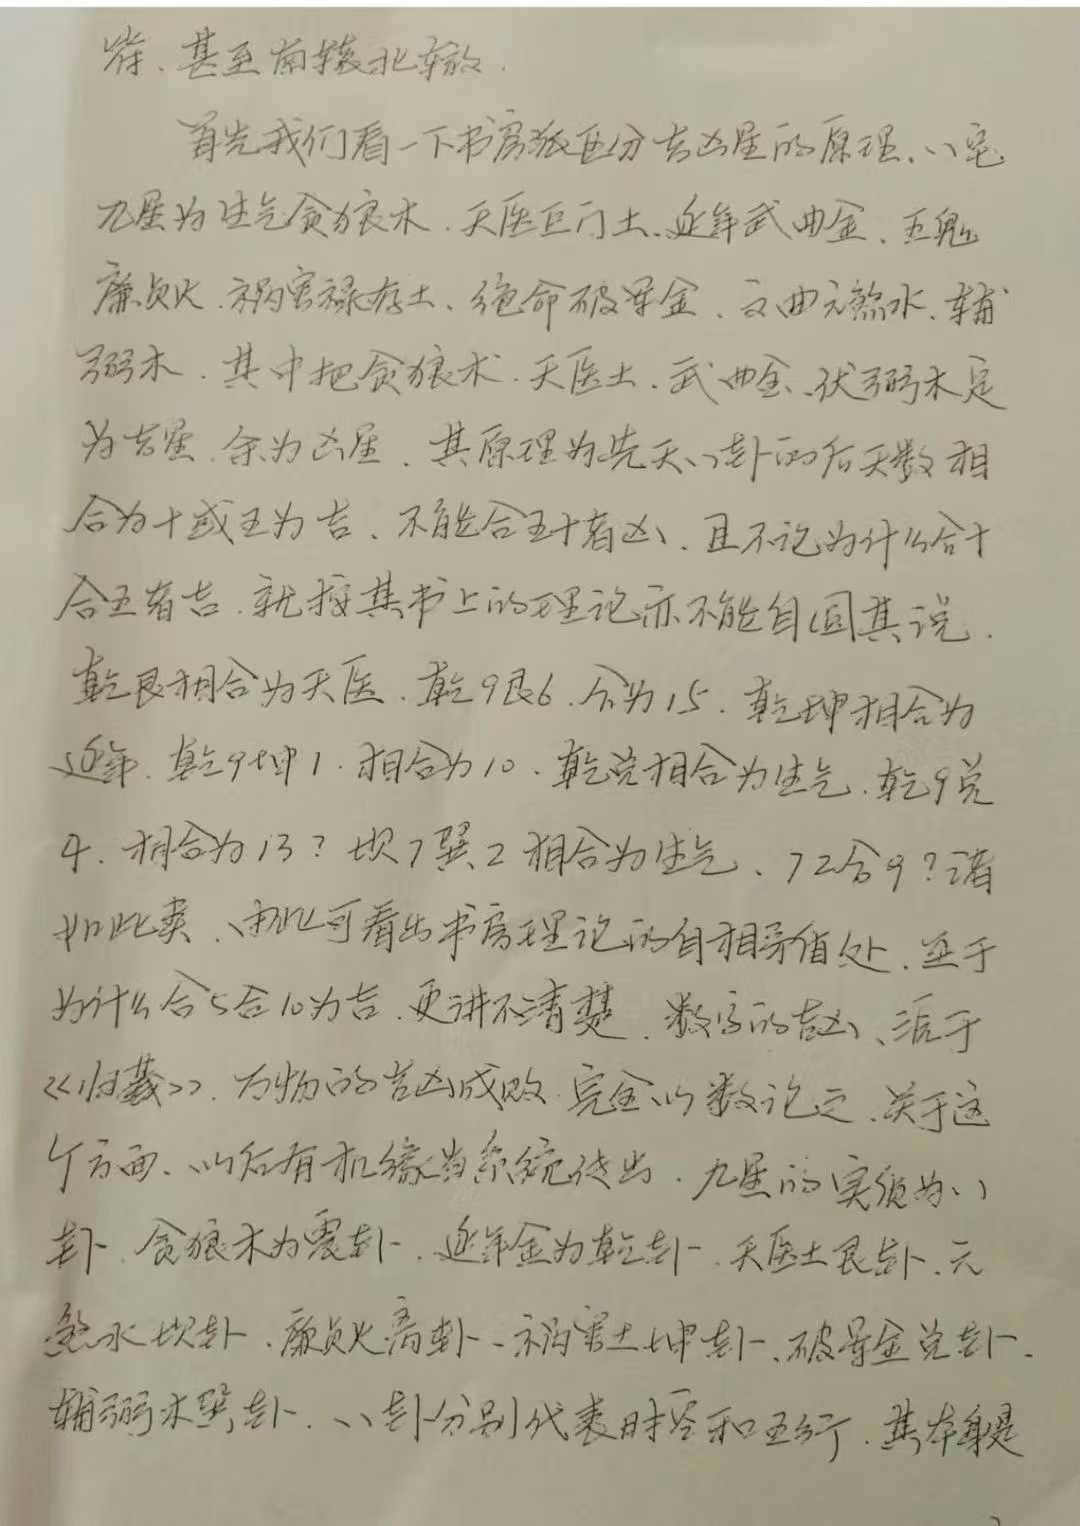 符、甚至南辕北辙.
首先我们看一下书房派区分吉凶星的原理、八宅
九星为生气贪狼木.天医巨门土、延年武曲金、五鬼
廉贞火.祸害禄存土、绝命破军金、文曲六煞水.辅
弼木.其中把贪狼木.天医土.武曲金、伏弼木定
为吉星.余为凶星.其原理为先天八卦的后天数相
合为十或五为吉、不能合五十者凶、且不论为什么合十
合五者吉.就按其书上的理论亦不能自圆其说.
乾艮相合为天医.乾9艮6.合为15.乾坤相合为
延年.乾9坤1.相合为10.乾兑相合为生气.乾9兑
4.相合为13?坎7巽2相合为生气、72合9?诸
如此类、由此可看出书房理论的自相矛盾处.至于
为什么合5合10为吉.更讲不清楚.数字的吉凶、源于
《归藏》.万物的吉凶成败.完全以数论之.关于这
个方面、以后有机缘当系统传出.九星的实质为八
卦.贪狼木为震卦.延年金为乾卦.天医土艮卦.六
煞水坎卦.廉贞火离卦、祸害土坤卦、破军金兑卦.
辅弼木巽卦.八卦分别代表时空和五行.其本身是